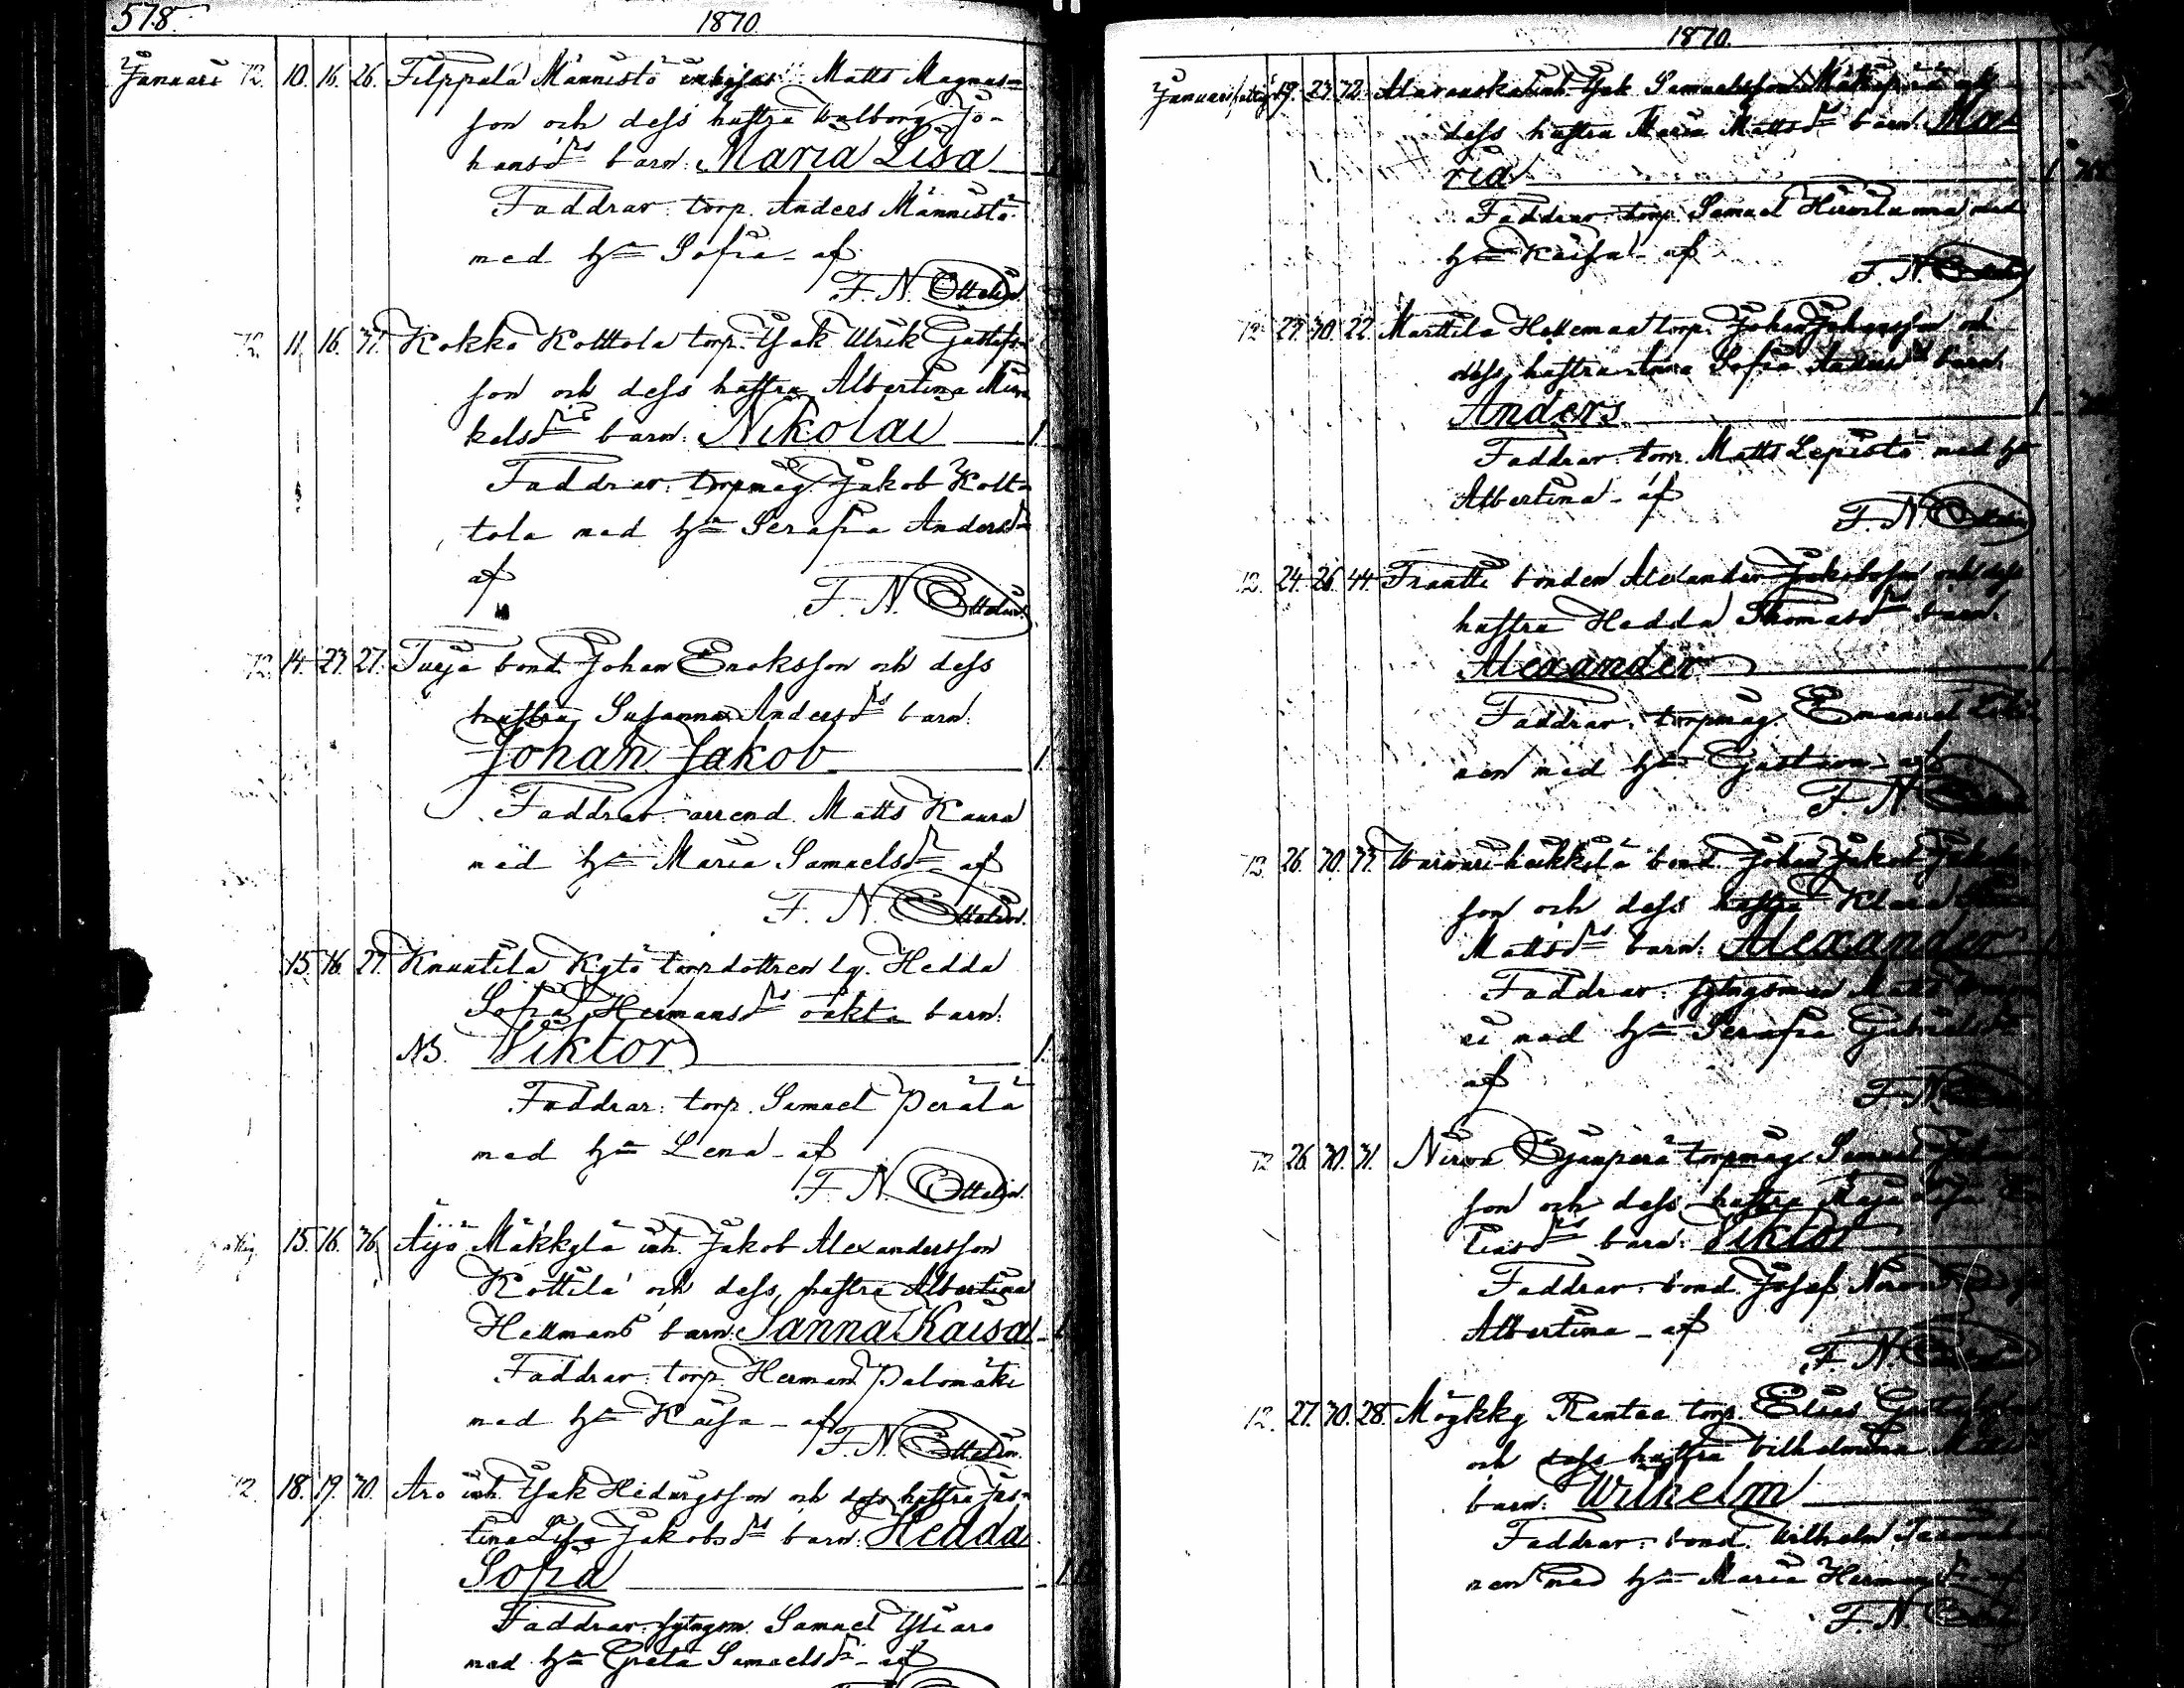 578.
1870.
Januari 12. 10. 16. 26. Filppala Männistö inhyses Matts Magnus=
son och dess hustru Walborg Jo-
hansdrs barn: Maria Lisa
Faddrar: torp. Anders Männistö
med hu Sofia - af
F. N. Ottelin.
12. 11. 16. 37. Kokko Kolttola torp. Isak Ulrik Gustafs=
son och dess hustru Albertina Mi
kelsdrs barn: Nikolai 1.
Faddrar: torpmåg. Jakob Kolt=
tola med hu Serafia Andersdr
af
F. N. Ottelin.
12. 14. 23. 27. Turja bond. Johan Eriksson och dess
hustru Susanna Andersdrs barn:
Johan Jakob 1.
Faddrar: arrend. Matts Kaura
med hu Maria Samuelsdr af
F. N. Ottelin.
15. 16. 27. Knuutila Kytö torpdottren lg. Hedda
Sofia Hermansdrs oäkta barn:
NB. Viktor 1.
Faddrar: torp. Samuel Perälä
med hu Lena - af
F. N. Ottelin.
15. 16. 36. Äijö Mäkkylä inh. Jakob Alexandersson
Kottila och dess hustru Albertina
Hellmans barn: Sanna Kaisa 1.
Faddrar: torp. Herman Palomäki
med hu Kaisa - af
F. N. Ottelin.
12. 18. 19. 30. Aro inh. Isak Hendrigsson och dess hustru Jus=
tina Lisa Jakobsdrs barn: Hedda
Sofia 1.
Faddrar: sytngsm. Samuel Yliaro
med hu Greta Samuelsdr - af
1870.
Januari 19. 23. 32. inh. Isak Samuelsson
dess hustru Maria Mattsdrs barn: Ma=
ria 1.
Faddrar: torp. Samuel Hirvilamma med
hu Kaisa - af
F. N. Ottelin
12. 23. 30. 22. Marttila Helleman torp. Johan Johansson och
dess hustru Anna Sofia Andersdrs barn:
Anders 1.
Faddrar: torp. Matts Lepistö med hu
Albertina - af
F. N. Ottelin
12. 24. 26. 44. Frantti bonden Alexander Jakobsson och dess
hustru Hedda Thomasdrs barn:
Alexander 1.
Faddrar: torpmåg. Emanuel
nen med hu Gustava - af
F. N. Ottelin
12. 26. 30. 33. bond. Johan Jakob
son och dess hustru Klara
Mattsdrs barn: Alexander
Faddrar: sytngsman Matts
ri med hu Serafia Gabrielsdr
af
F. N. Ottelin
12. 26. 30. 31. Nirva torpmåg. Samuel
son och dess hustru Maja
liasdrs barn: Viktor
Faddrar: bond. Josef
Albertina - af
F. N. Ottelin
12. 27. 30. 28. Möykky Rantaa torp. Elias
och dess hustru Vilhelmina
barn: Wilhelm
Faddrar: bond. Wilhelm
nen med hu Maria
F. N. Ottelin